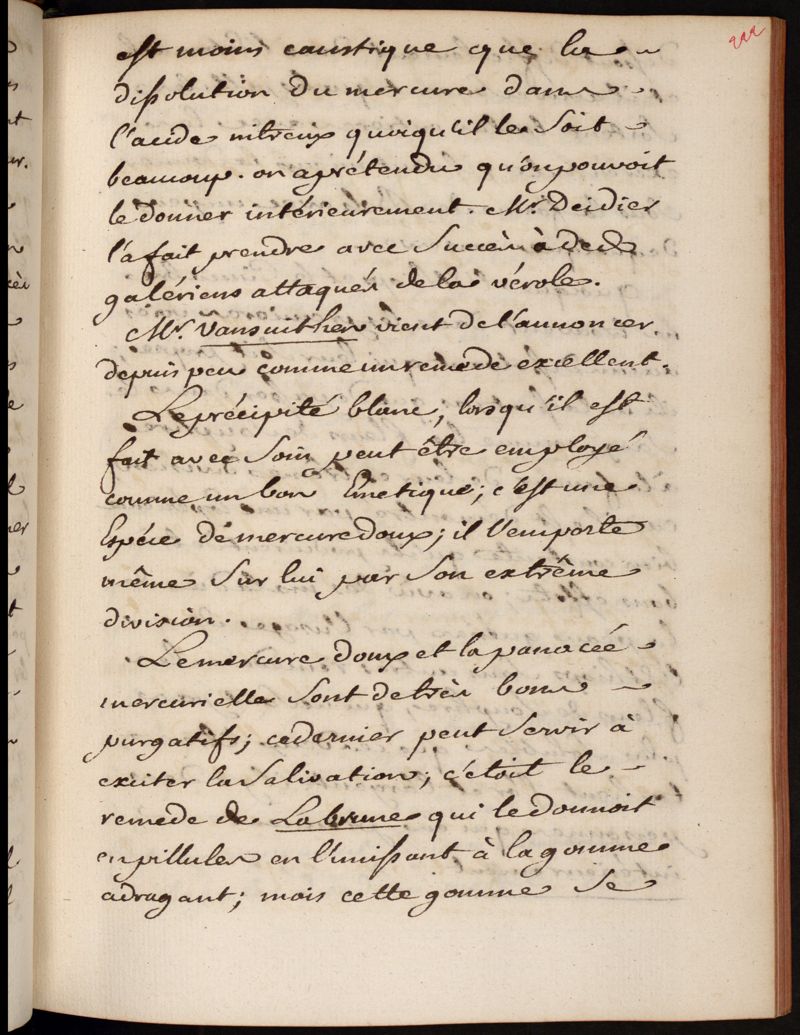 222
est moins caustique que la
dissolution du mercure dans
l'acide nitreux quoiqu'il le soit
beaucoup. on a prétendu qu'on pouvoit
le donner intérieurement. Mr. Deidier
l'a fait prendre avec succès à des
galériens attaqués de la vérole.
Mr. Vansuithen vient de l'annoncer
depuis peu comme un remede excellent.
Le précipité blanc, lorsqu'il est
fait avec soin peut être employé
comme un bon Emetique; c'est une
Espéce de mercure doux; il l'emporte
même sur lui par son extrême
division.
Le mercure doux et la panacée
mercurielle sont de très bons
purgatifs; ce dernier peut servir à
exciter la salivation; c'étoit le
remede de Labrune qui le donnoit
en pillules en l'unissant à la gomme
adragant; mais cette gomme se